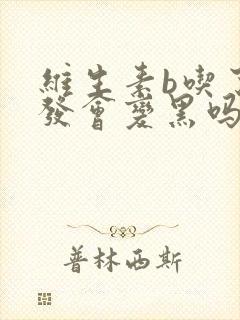 維生素b喫
發會變黑吗
普林西斯